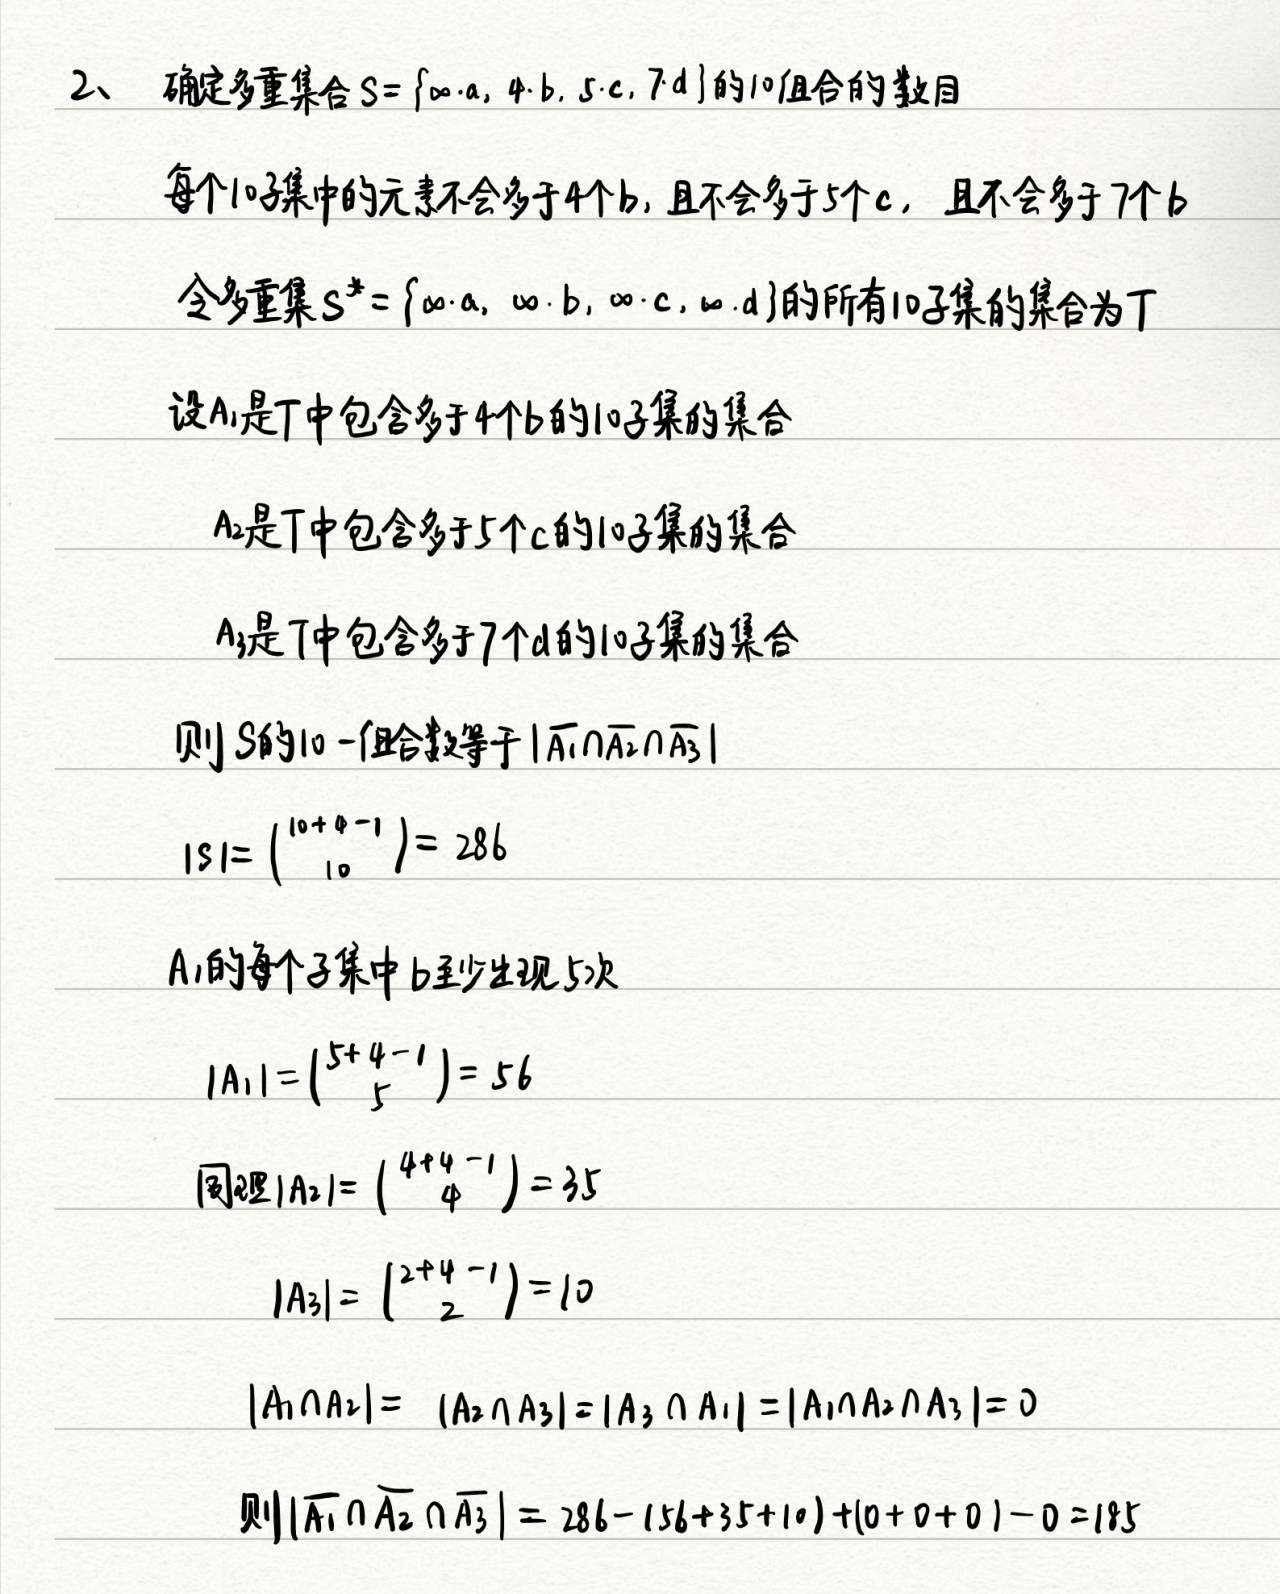 2、 确定多重集合S={∞·a, 4·b, 5·c, 7·d}的10组合的数目
每个10子集中的元素不会多于4个b, 且不会多于5个c, 且不会多于7个b
令多重集S*={∞·a, ∞·b, ∞·c, ∞·d}的所有10子集的集合为T
设A₁是T中包含多于4个b的10子集的集合
A₂是T中包含多于5个c的10子集的集合
A₃是T中包含多于7个d的10子集的集合
则S的10-组合数等于|A̅₁∩A̅₂∩A̅₃|
|S|=(10+4-1 10)=286
A₁的每个子集中b至少出现5次
|A₁|=(5+4-1 5)=56
同理|A₂|=(4+4-1 4)=35
|A₃|=(2+4-1 2)=10
|A₁∩A₂|= |A₂∩A₃|=|A₃∩A₁|=|A₁∩A₂∩A₃|=0
则|A̅₁∩A̅₂∩A̅₃|=286-(56+35+10)+(0+0+0)-0=185